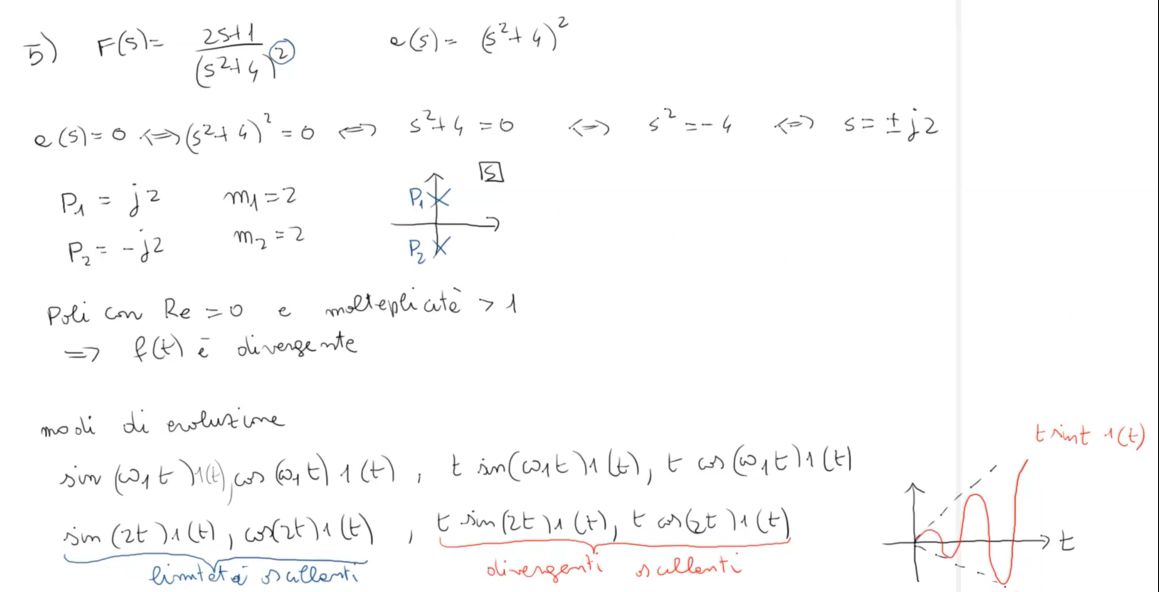 5) F(s)= 2s+1/(s²+4)² e(s)= (s²+4)²
e(s)=0 ⟺ (s²+4)²=0 ⟺ s²+4=0 ⟺ s²=-4 ⟺ s=±j2
P₁ = j2 m₁=2
P₂ = -j2 m₂=2
S
P₁
P₂
Poli con Re=0 e molteplicità >1
⟹ f(t) è divergente
modi di evoluzione
t sint 1(t)
sin(ω₁t)1(t), cos(ω₁t)1(t), t sin(ω₁t)1(t), t cos(ω₁t)1(t)
sin(2t)1(t), cos(2t)1(t), t sin(2t)1(t), t cos(2t)1(t)
t
divergenti oscillanti